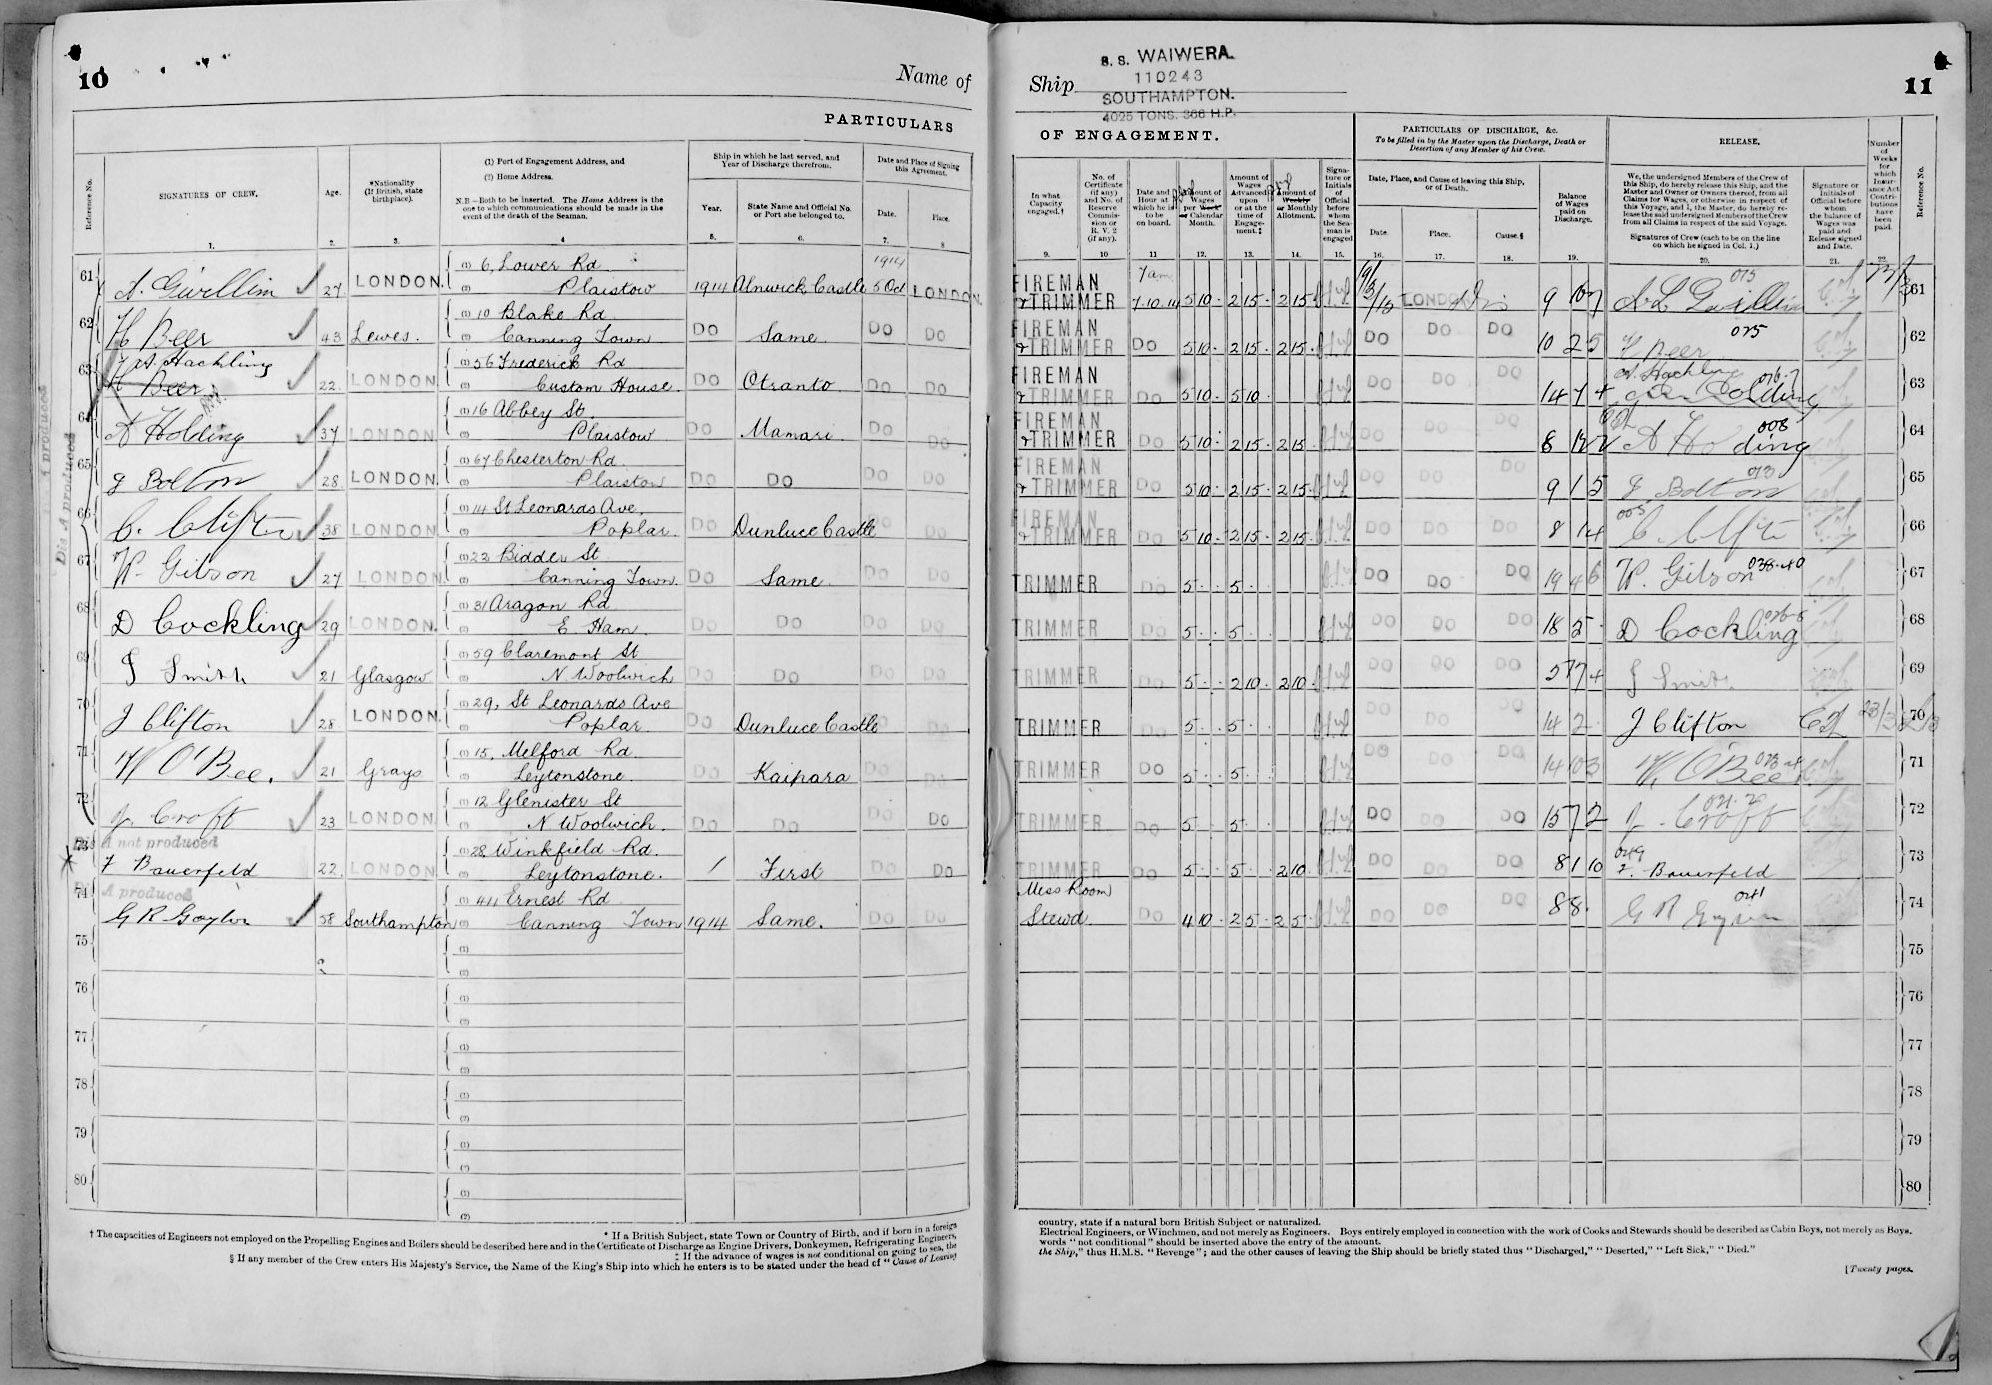 10
Name of
PARTICULARS
Reference No.
SIGNATURES OF CREW.
Age.
*Nationality
(If British, state
birthplace).
(1) Port of Engagement Address, and
(2) Home Address.
N.B—Both to be inserted. The Home Address is the
one to which communications should be made in the
event of the death of the Seaman.
Ship in which he last served, and
Year of Discharge therefrom.
Year.
State Name and Official No.
or Port she belonged to.
Date and Place of Signing
this Agreement.
Date.
Place.
1.
2.
3.
4
5.
6.
7.
8
1914
61 A. Gwillim 27 LONDON. (1) 6, Lower Rd
(2) Plaistow 1914 Alnwick Castle 5 Oct LONDON.
62 H Beer 43 Lewes. (1) 10 Blake Rd
(2) Canning Town Do Same. Do Do
63 A. Hackling
H Beer 22 LONDON (1) 56 Frederick Rd
(2) Custom House. Do Otranto Do Do
64 A Holding 37 LONDON (1) 16 Abbey St.
(2) Plaistow Do Mamari Do Do
65 J Bolton 28 LONDON (1) 67 Chesterton Rd
(2) Plaistow Do Do Do Do
66 C. Clifton 38 LONDON (1) 14 St Leonards Ave,
(2) Poplar. Do Dunluce Castle Do Do
67 W. Gilson 27 LONDON (1) 22 Bidder St
(2) Canning Town. Do Same Do Do
68 D Cockling 29 LONDON. (1) 31 Aragon Rd
(2) E Ham. Do Do Do Do
69 J Smith 21 Glasgow (1) 59 Claremont St
(2) N Woolwich Do Do Do Do
70 J Clifton 28 LONDON. (1) 29, St Leonards Ave
(2) Poplar. Do Dunluce Castle Do
71 W O'Bee. 21 Grays (1) 15, Melford Rd
(2) Leytonstone. Do Kaipara Do Do
72 J. Croft 23 LONDON (1) 12 Glenister St
(2) N Woolwich. Do Do Do Do
Dis A not produced
73 F Bauerfeld 22. LONDON (1) 28 Winkfield Rd.
(2) Leytonstone. / First Do Do
A produced
74 G R Gaylor 58 Southampton (1) 411 Ernest Rd
(2) Canning Town 1914 Same. Do Do
Dis A produced
A produced
75 (1)
(2)
76 (1)
(2)
77 (1)
(2)
78 (1)
(2)
79 (1)
(2)
80 (1)
(2)
* If a British Subject, state Town or Country of Birth, and if born in a foreign
† The capacities of Engineers not employed on the Propelling Engines and Boilers should be described here and in the Certificate of Discharge as Engine Drivers, Donkeymen, Refrigerating Engineers,
‡ If the advance of wages is not conditional on going to sea, the
§ If any member of the Crew enters His Majesty's Service, the Name of the King's Ship into which he enters is to be stated under the head of "Cause of Leaving
Ship
S. S. WAIWERA.
110243
SOUTHAMPTON.
4025 TONS. 366 H.P.
11
OF ENGAGEMENT.
PARTICULARS OF DISCHARGE, &c.
To be filled in by the Master upon the Discharge, Death or
Desertion of any Member of his Crew.
RELEASE.
In what
Capacity
engaged.†
No. of
Certificate
(if any)
and No. of
Reserve
Commis-
sion or
R. V. 2
(if any).
Date and
Hour at
which he is
to be
on board.
Amount of
Wages
per Week
or Calendar
Month.
Amount of
Wages
Advanced
upon
or at the
time of
Engage-
ment.‡
Amount of
Weekly
or Monthly
Allotment.
Signa-
ture or
Initials
of
Official
before
whom
the Sea-
man is
engaged
Date, Place, and Cause of leaving this Ship,
or of Death.
Date.
Place.
Cause.§
Balance
of Wages
paid on
Discharge.
We, the undersigned Members of the Crew of
this Ship, do hereby release this Ship, and the
Master and Owner or Owners thereof, from all
Claims for Wages, or otherwise in respect of
this Voyage, and I, the Master, do hereby re-
lease the said undersigned Members of the Crew
from all Claims in respect of the said Voyage.
Signatures of Crew (each to be on the line
on which he signed in Col. 1.)
Signature or
Initials of
Official before
whom
the balance of
Wages was
paid and
Release signed
and Date.
Number
of
Weeks
for
which
Insur-
ance Act
Contri-
butions
have
been
paid.
Reference No.
9.
10
11
12.
13.
14.
15.
16.
17.
18.
19.
20.
21.
22.
FIREMAN 7 am 075
& TRIMMER 7.10.14 5 10 · 2 15 · 2 15 LONDON Dis 9 10 7 A L Gwillim 61
FIREMAN 075
& TRIMMER Do 5 10 · 2 15 · 2 15 · Do Do Do 10 2 5 H Beer 62
FIREMAN A. Hackling
& TRIMMER Do 5 10 · 5 10 Do Do Do 14 7 4 63
FIREMAN 008
& TRIMMER Do 5 10 · 2 15 · 2 15 · Do Do 8 12 2 A Holding 64
FIREMAN
& TRIMMER Do 5 10 · 2 15 · 2 15 · Do Do Do 9 1 5 J Bolton 65
FIREMAN 005
& TRIMMER Do 5 10 · 2 15 · 2 15 · Do Do Do 8 14 C. Clifton 66
TRIMMER Do 5 · 5 · Do Do Do 19 4 6 W. Gilson 67
TRIMMER Do 5 · · 5 · Do Do Do 18 5 · D Cockling 68
TRIMMER Do 5 · · 2 10 · 2 10 · Do Do Do 5 7 4 J Smith 69
TRIMMER Do 5 · · 5 · Do Do Do 14 2 · J Clifton 70
TRIMMER Do 5 · · 5 · Do Do Do 14 0 3 W, O'Bee 71
TRIMMER Do 5 · · 5 · Do Do Do 15 7 2 J. Croft 72
TRIMMER Do 5 · · 5 · · 2 10 Do Do Do 8 1 10 049 F. Bauerfeld 73
Mess Room 041
Stewd. Do 4 10 · 2 5 · 2 5 · Do Do Do 8 8 · G R Gaylor 74
75
76
77
78
79
80
country, state if a natural born British Subject or naturalized.
Electrical Engineers, or Winchmen, and not merely as Engineers. Boys entirely employed in connection with the work of Cooks and Stewards should be described as Cabin Boys, not merely as Boys.
words "not conditional" should be inserted above the entry of the amount.
the Ship," thus H.M.S. "Revenge"; and the other causes of leaving the Ship should be briefly stated thus "Discharged," "Deserted," "Left Sick," "Died."
[Twenty pages.